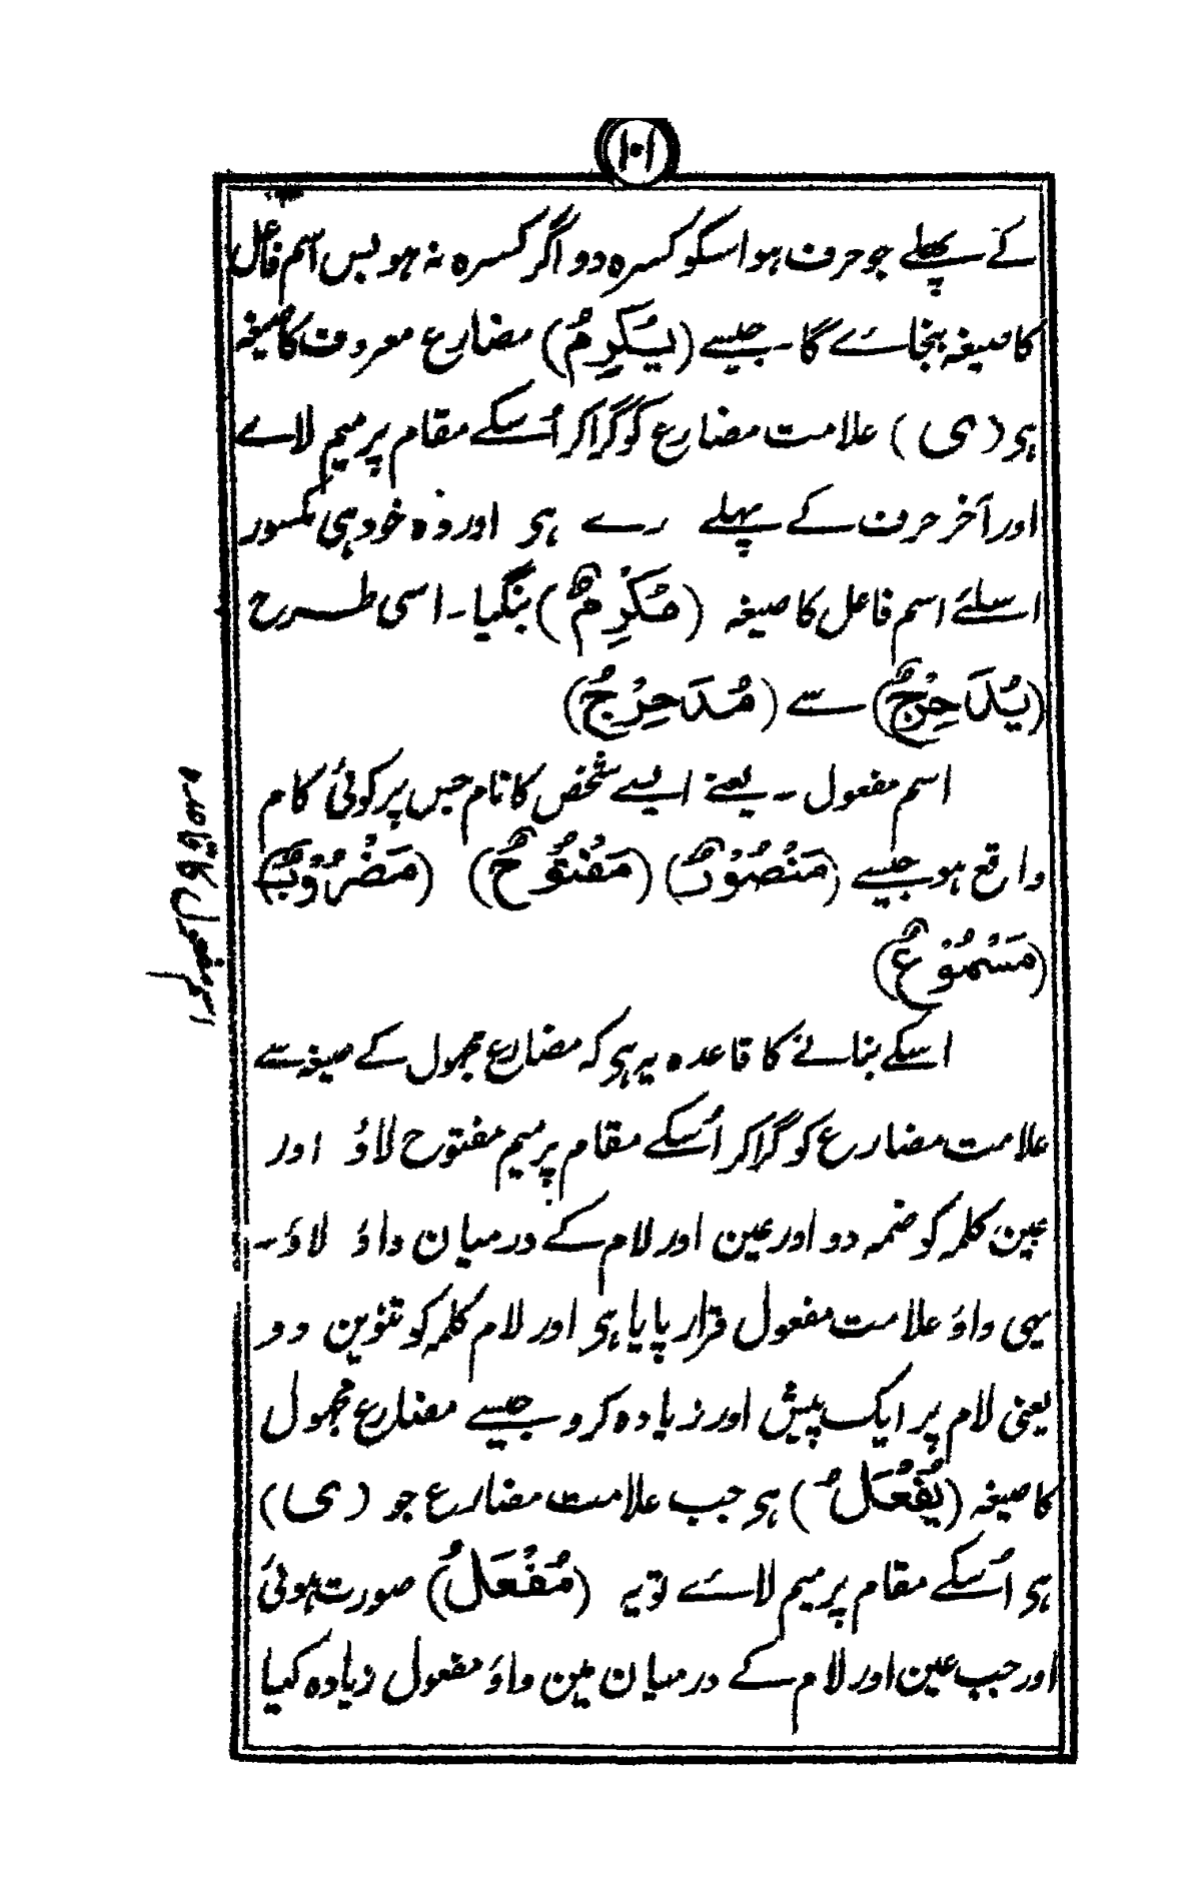 ۱۰۱
کے پہلے جو حرف ہو اسکو کسرہ دو اگر کسرہ نہ ہو بس اسم فاعل
کا صیغہ بنجاے گا۔ جیسے (یُکْرِمُ) مضارع معروف کا صیغہ
ہی (ی) علامت مضارع کو گرا کر اُسکے مقام پر میم لاے
اور آخر حرف کے پہلے رے ہی اور وہ خود ہی مکسور
اسلئے اسم فاعل کا صیغہ (مُکْرِمٌ) بنگیا۔ اسی طرح
(یُدَحْرِجُ) سے (مُدَحْرِجٌ)
اسم مفعول ۔ یعنے ایسے شخص کا نام جس پر کوئی کام
واقع ہو جیسے (مَنْصُوْرٌ) (مَفْتُوْحٌ) (مَضْرُوْبٌ)
(مَسْمُوْعٌ)
اسکے بنانے کا قاعدہ یہ ہی کہ مضارع مجہول کے صیغہ سے
علامت مضارع کو گرا کر اُسکے مقام پر میم مفتوح لاؤ اور
عین کلمہ کو ضمہ دو اور عین اور لام کے درمیان واؤ لاؤ۔
یہی واؤ علامت مفعول قرار پایا ہی اور لام کلمہ کو تنوین دو
یعنی لام پر ایک پیش اور زیادہ کرو جیسے مضارع مجہول
کا صیغہ (یُفْعَلُ) ہی جب علامت مضارع جو (ی)
ہی اُسکے مقام پر میم لائے تو یہ (مُفْعَلُ) صورت ہوئی
اور جب عین اور لام کے درمیان مین واؤ مفعول زیادہ کیا